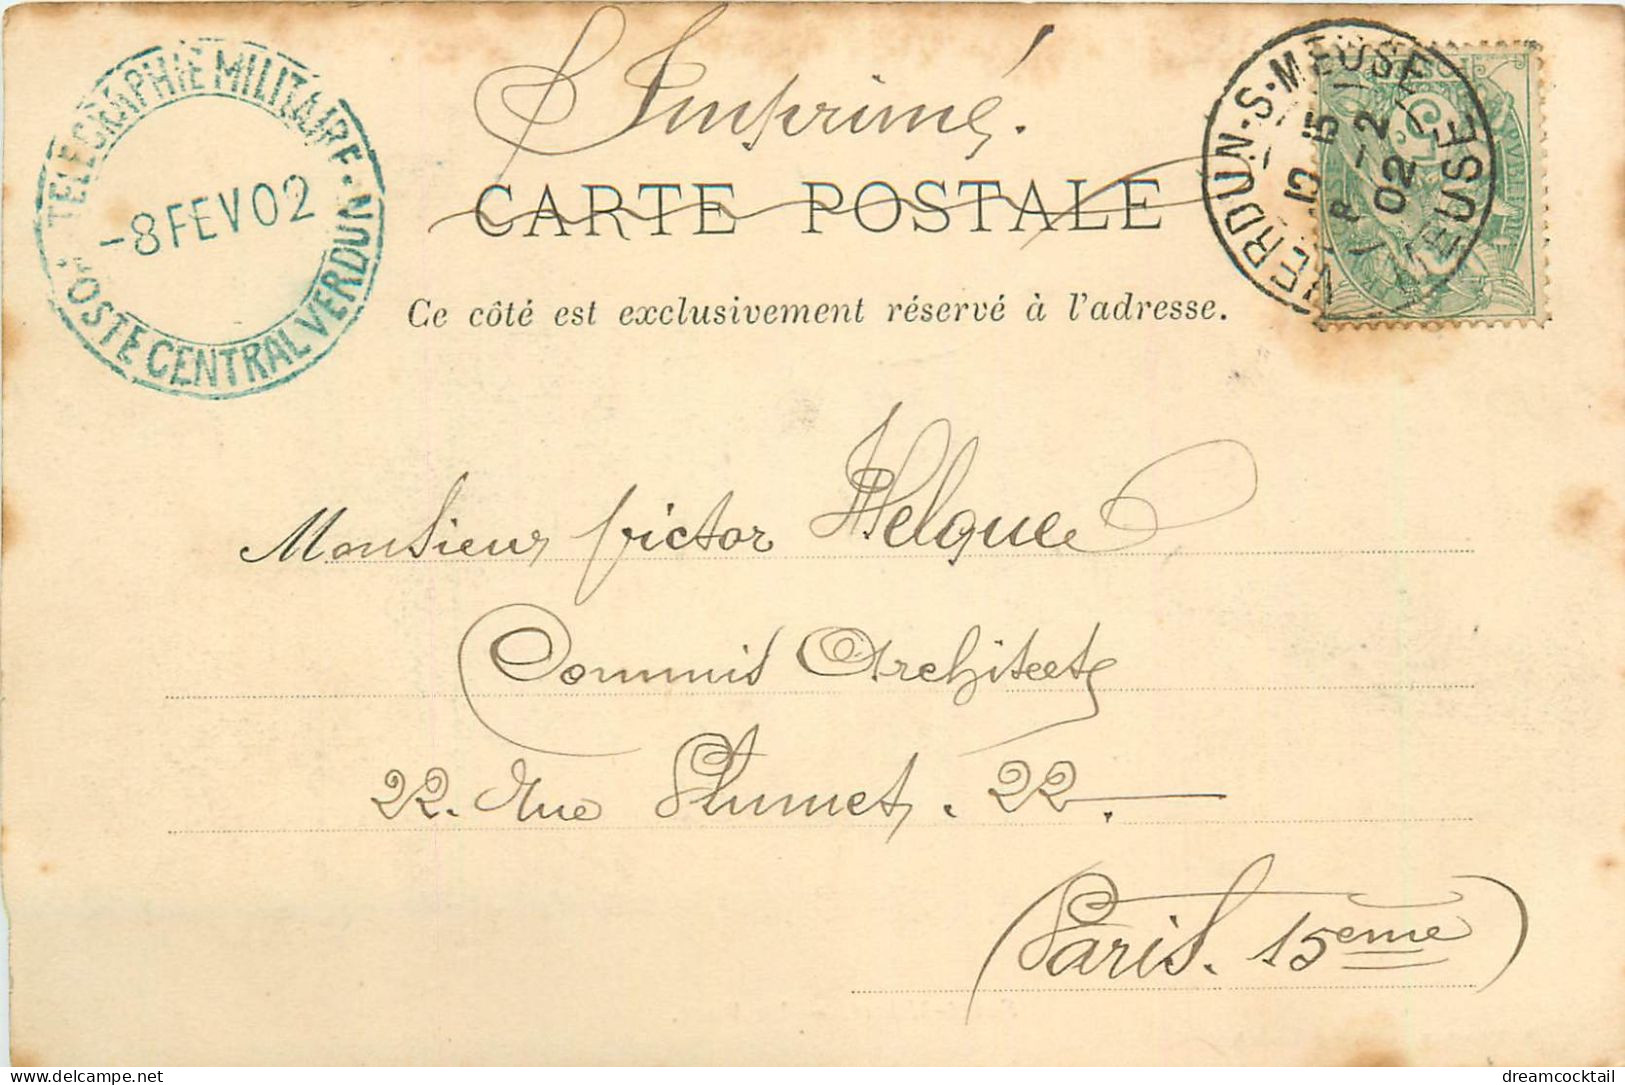 TELEGRAPHIE MILITAIRE - VERDUN
-8 FEV 02
POSTE CENTRAL
Imprimé.
CARTE POSTALE
Ce côté est exclusivement réservé à l'adresse.
VERDUN-S-MEUSE
15
10
8 - 2
02
MEUSE
Monsieur Victor Helque
Commis Architecte
22. Rue Plumet. 22.
(Paris. 15eme)
https://www.delcampe.net
dreamcocktail